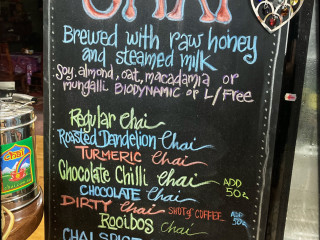 CHAI
Brewed with raw honey
and steamed milk
Soy, almond, oat, macadamia or
mungalli BIODYNAMIC or L/Free
Regular Chai
Roasted Dandelion Chai
TURMERIC Chai
Chocolate Chilli Chai ADD 50¢
CHOCOLATE Chai
DIRTY Chai SHOT of COFFEE ADD 50¢
ROOIBOS Chai
CHAI SPICE
Chai